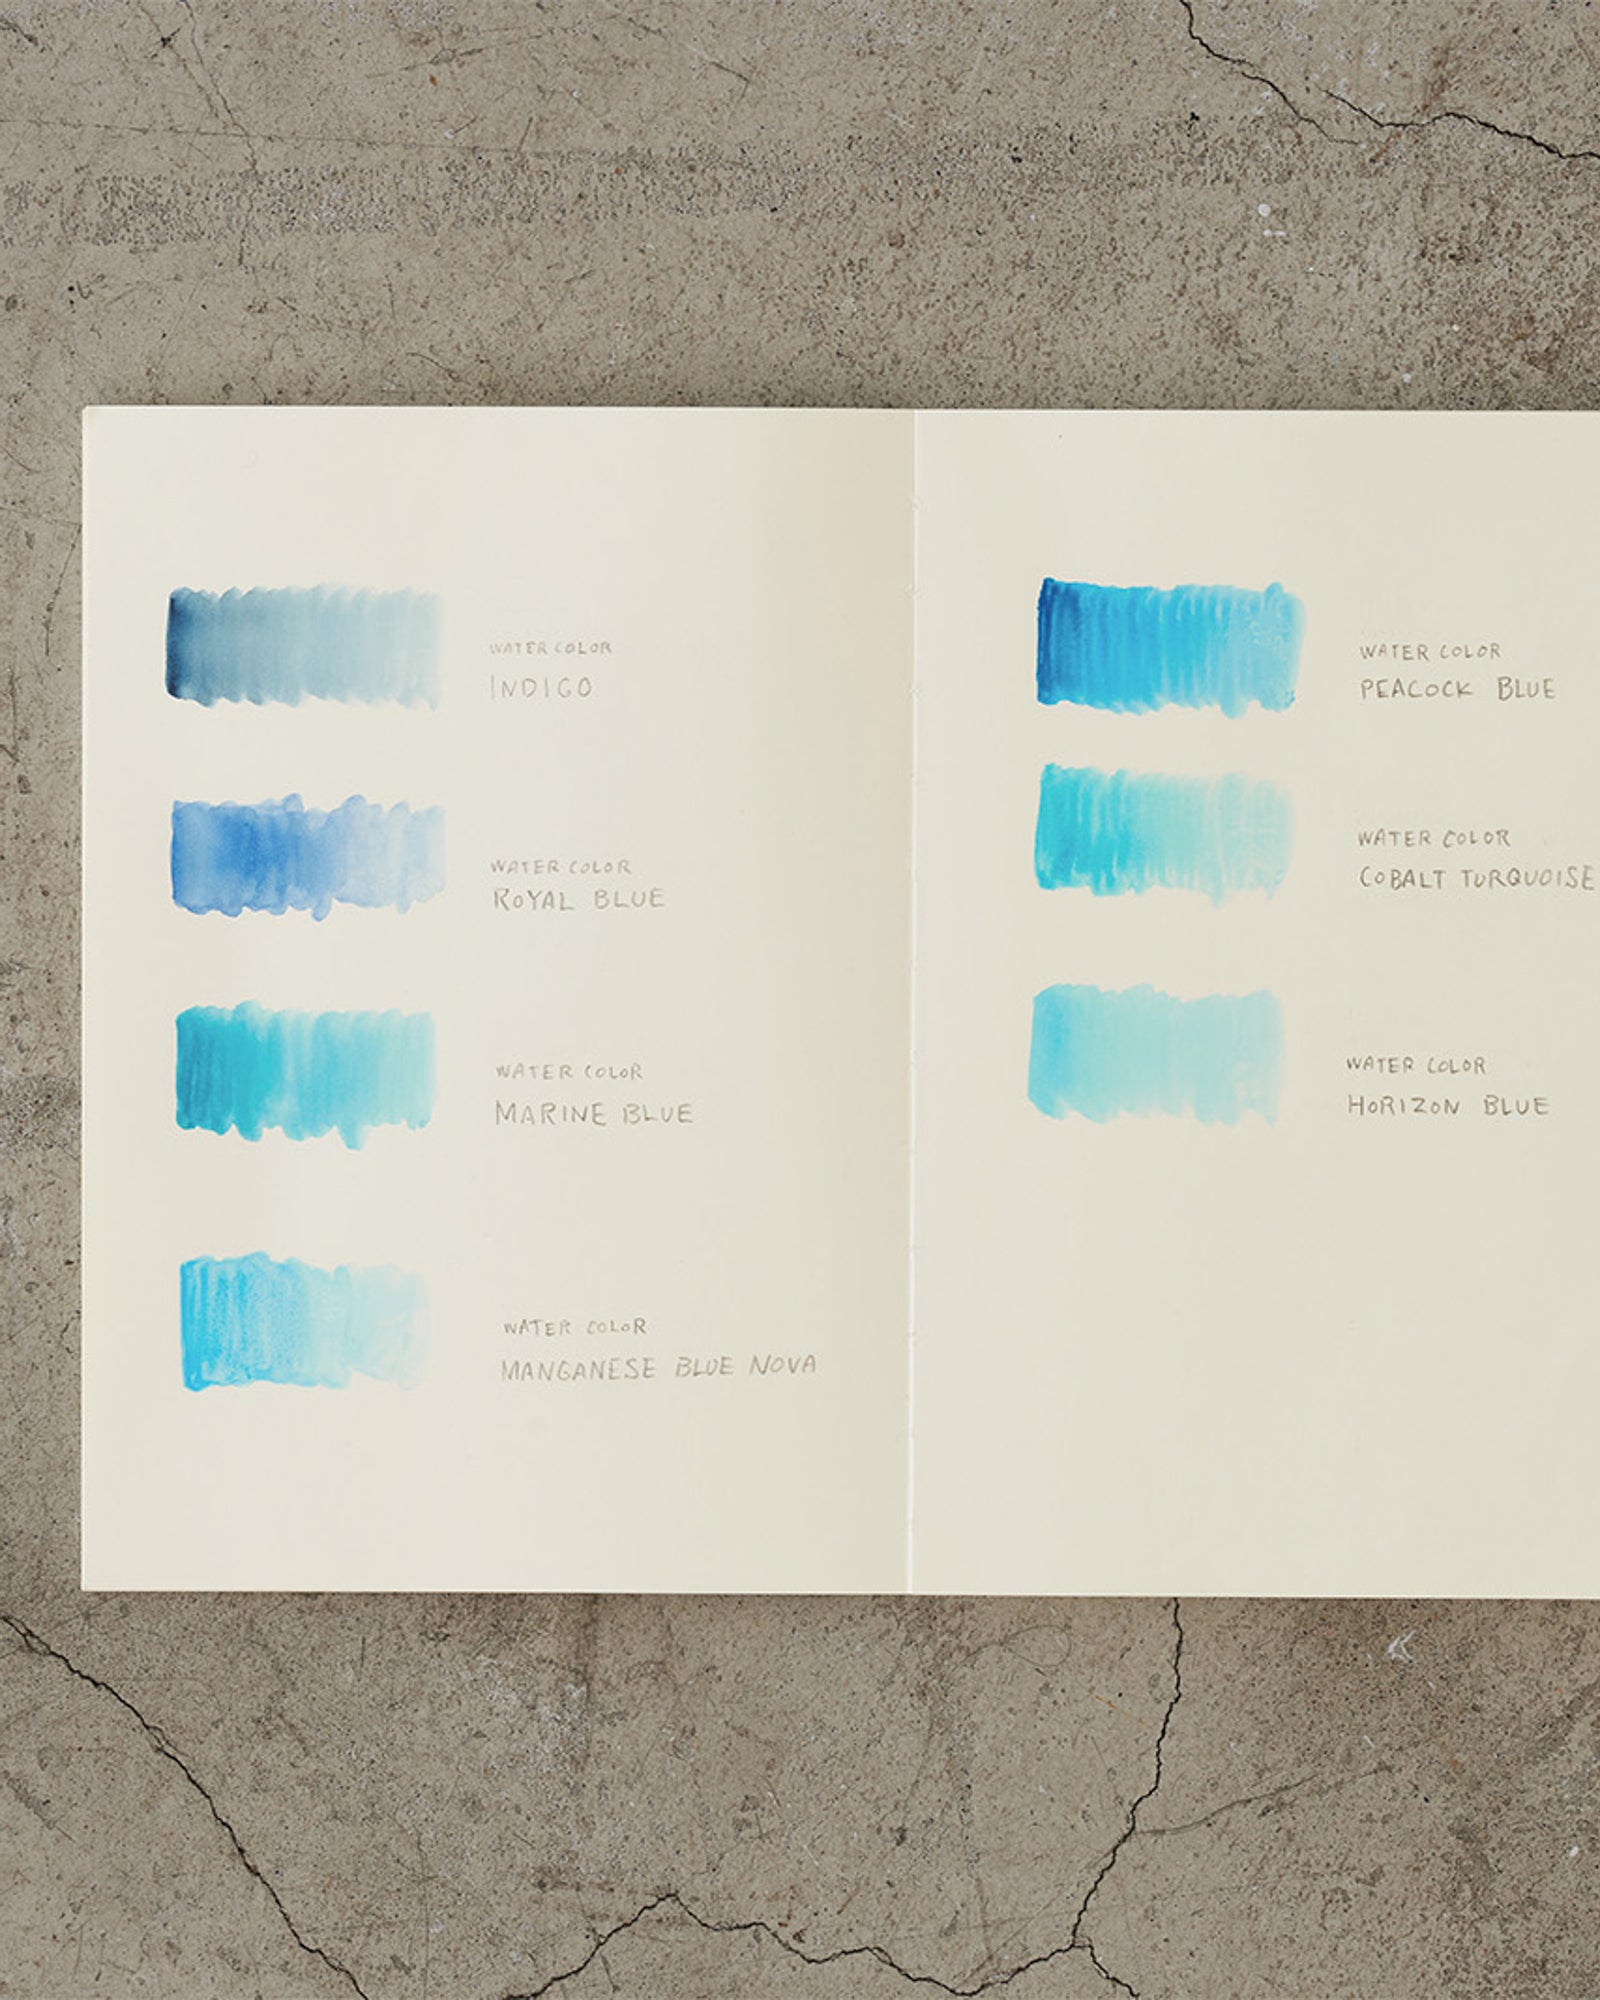 WATER COLOR
INDIGO
WATER COLOR
ROYAL BLUE
WATER COLOR
MARINE BLUE
WATER COLOR
MANGANESE BLUE NOVA
WATER COLOR
PEACOCK BLUE
WATER COLOR
COBALT TURQUOISE
WATER COLOR
HORIZON BLUE